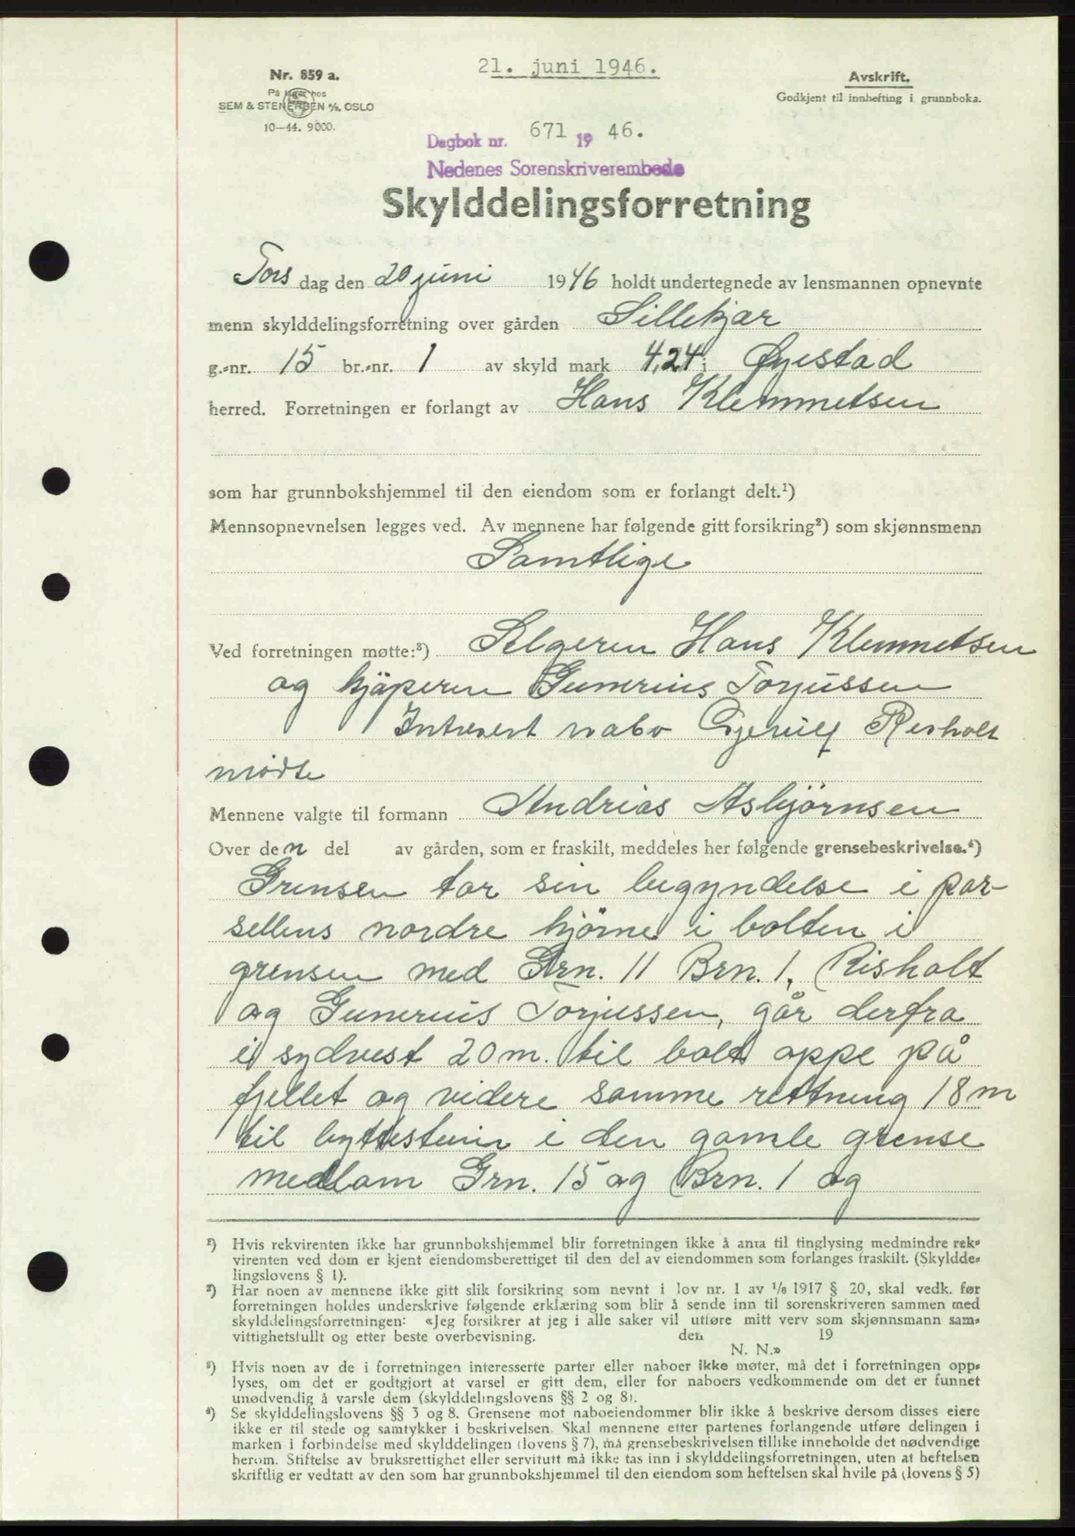 21. juni 1946.
Nr. 859 a.
På lager hos
SEM & STENERSEN A/S, OSLO
10—44. 9000.
Avskrift.
Godkjent til innhefting i grunnboka.
Dagbok nr. 671 19 46.
Nedenes Sorenskriverembede
Skylddelingsforretning
Tors dag den 20 juni 1946 holdt undertegnede av lensmannen opnevnte
menn skylddelingsforretning over gården Sillekjær
g.-nr. 15 br.-nr. 1 av skyld mark 4,24 i Øyestad
herred. Forretningen er forlangt av Hans Klemmetsen
som har grunnbokshjemmel til den eiendom som er forlangt delt.¹)
Mennsopnevnelsen legges ved. Av mennene har følgende gitt forsikring²) som skjønnsmenn
Samtlige
Ved forretningen møtte:³) Selgeren Hans Klemmetsen
og kjøperen Gunerius Torjussen
Intresert nabo Gjerulf Risholt
mødte
Mennene valgte til formann Andrias Asbjørnsen
Over den del av gården, som er fraskilt, meddeles her følgende grensebeskrivelse.⁴)
Grensen tar sin begyndelse i par-
sellens nordre hjørne i bolten i
grensen med Grn. 11 Brn. 1, Risholt
og Gunerius Torjussen, går derfra
i sydvest 20 m. til bolt oppe på
fjellet og videre samme rettning 18 m
til byttestein i den gamle grense
mellom Grn. 15 og Brn. 1 og
¹) Hvis rekvirenten ikke har grunnbokshjemmel blir forretningen ikke å anta til tinglysing medmindre rek-
virenten ved dom er kjent eiendomsberettiget til den del av eiendommen som forlanges fraskilt. (Skyldde-
lingslovens § 1).
²) Har noen av mennene ikke gitt slik forsikring som nevnt i lov nr. 1 av 1/6 1917 § 20, skal vedk. før
forretningen holdes underskrive følgende erklæring som blir å sende inn til sorenskriveren sammen med
skylddelingsforretningen: «Jeg forsikrer at jeg i alle saker vil utføre mitt verv som skjønnsmann sam-
vittighetsfullt og etter beste overbevisning. den 19
N. N.»
³) Hvis noen av de i forretningen interesserte parter eller naboer ikke møter, må det i forretningen opp-
lyses, om det er godtgjort at varsel er gitt dem, eller for naboers vedkommende om det er funnet
unødvendig å varsle dem (skylddelingslovens §§ 2 og 8).
⁴) Se skylddelingslovens §§ 3 og 8. Grensene mot naboeiendommer blir ikke å beskrive dersom disses eiere
ikke er til stede og samtykker i beskrivelsen. Skal mennene etter partenes forlangende utføre delingen i
marken i forbindelse med skylddelingen (lovens § 7), må grensebeskrivelsen tillike inneholde det nødvendige
herom. Stiftelse av bruksrettighet eller servitutt må ikke tas inn i skylddelingsforretningen, uten at heftelsen
skriftlig er vedtatt av den som har grunnbokshjemmel til den eiendom som heftelsen skal hvile på (lovens § 5)